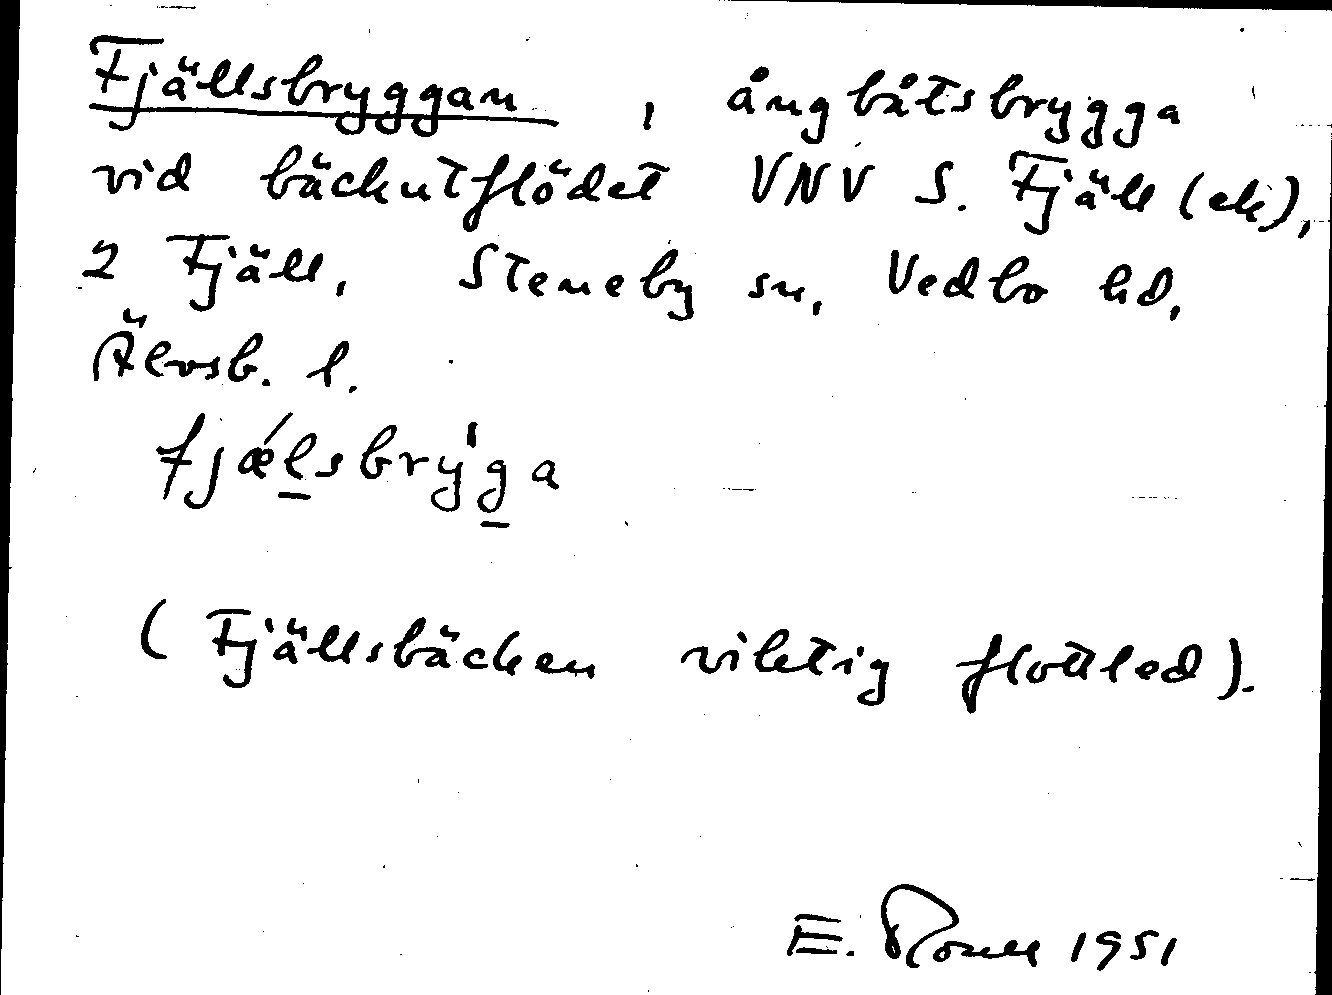 Fjällsbryggan, ångbåtsbrygga
vid bäckutflödet VNV S. Fjäll (ek),
2 Fjäll, Steneby sn, Vedbo hd,
Älvsb. l.
fjǽl̲sbry̍g̲a
(Fjällsbäcken viktig flottled).
E. 1951